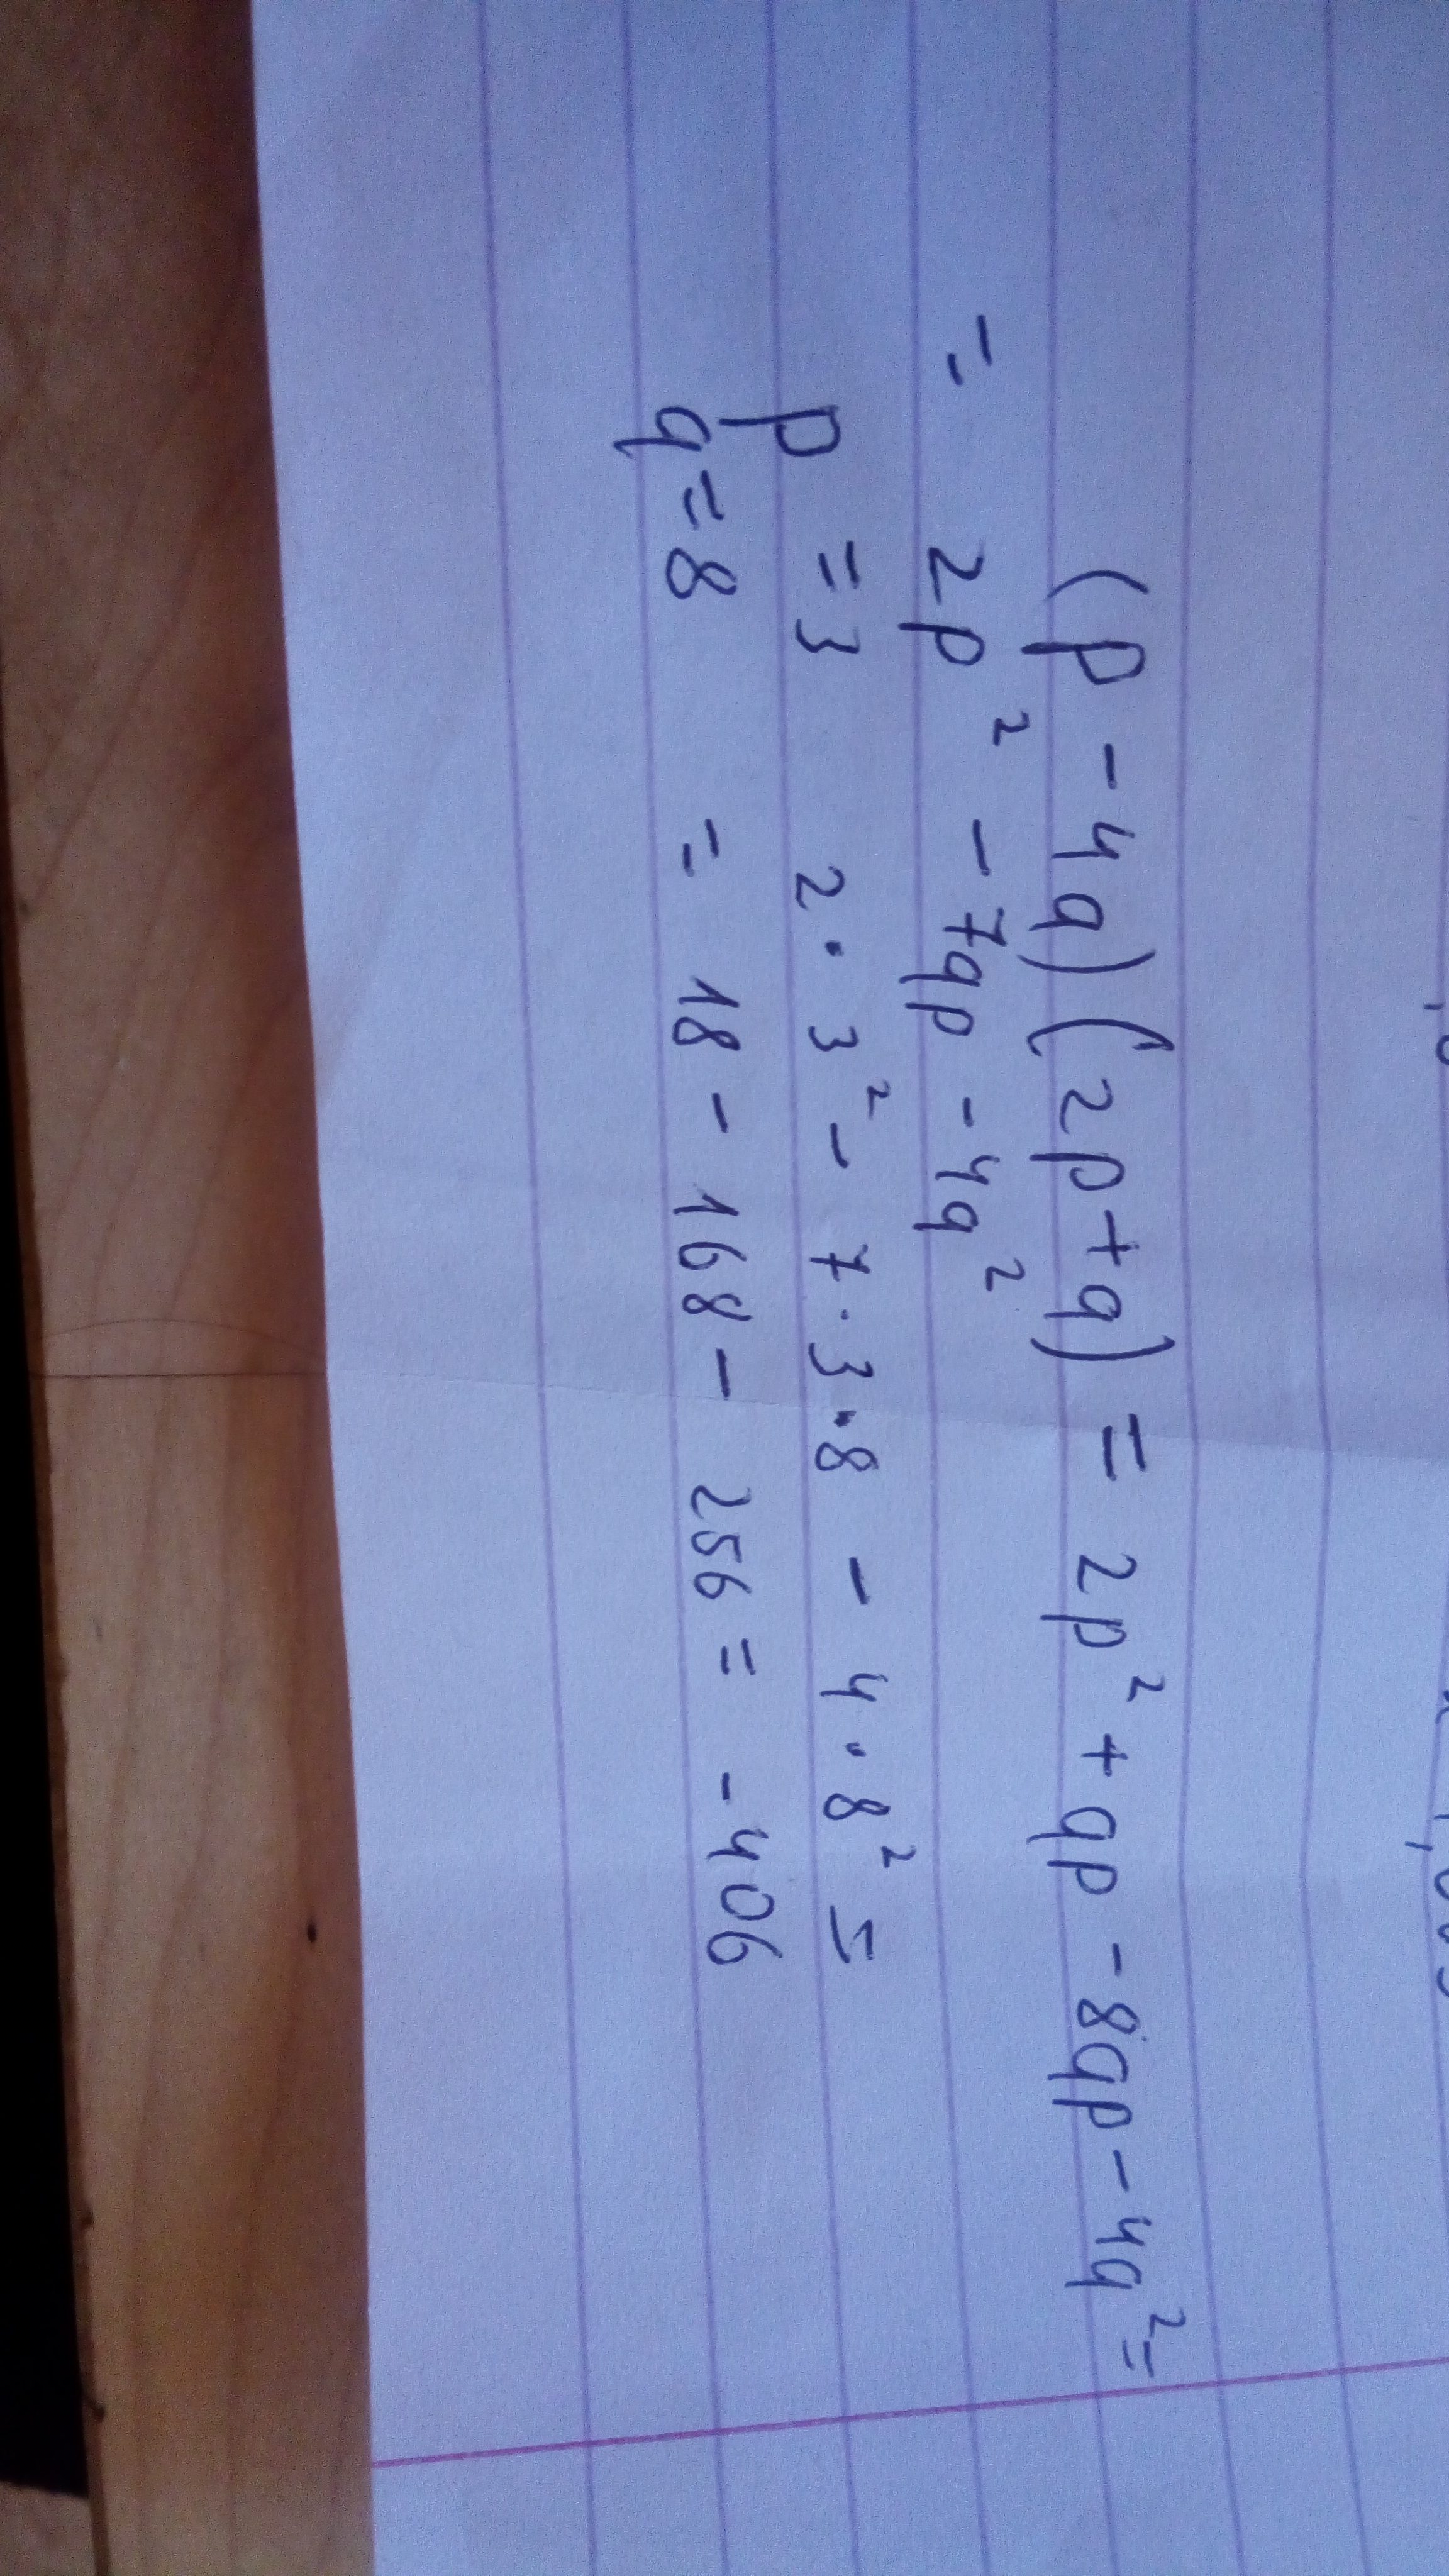 (p - 4q)(2p+q) = 2p² + qp - 8qp - 4q² =
= 2p² - 7qp - 4q²
p = 3 2 · 3² - 7 · 3 · 8 - 4 · 8² =
q = 8 = 18 - 168 - 256 = -406